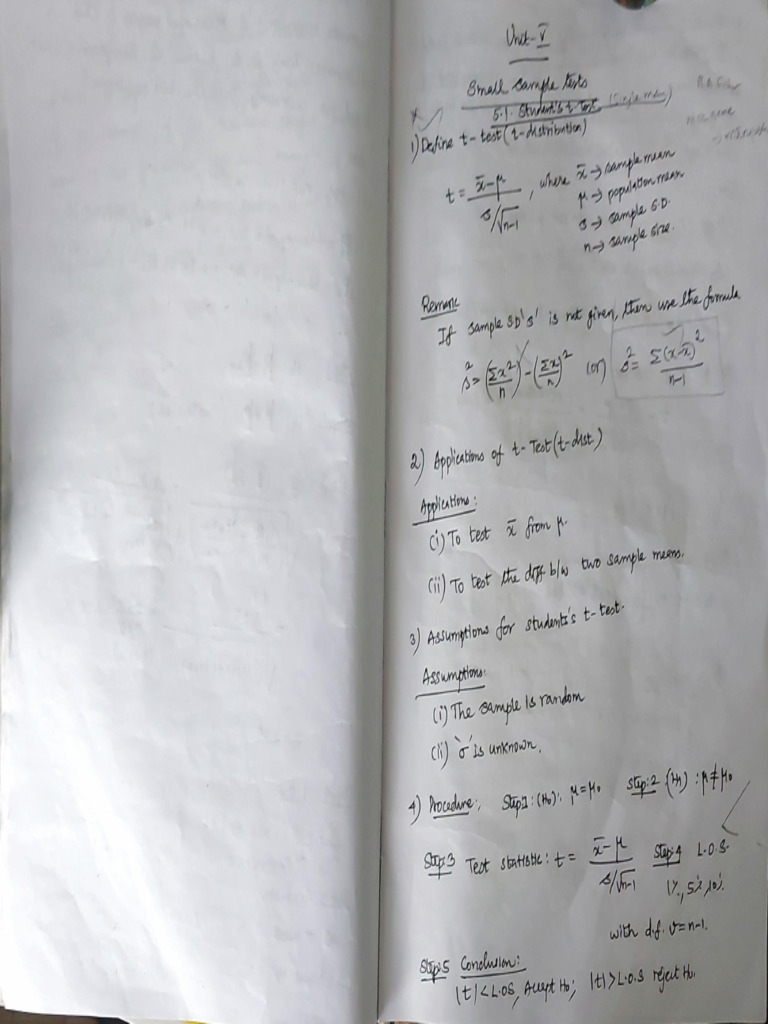 Unit-V
Small Sample Tests
5.1. Student's t-Test
1) Define t-test (t-distribution)
t = x̄-μ / s/√n-1, where x̄ → sample mean
μ → population mean
s → sample S.D.
n → sample size.
Remark
If sample SD 's' is not given, then use the formula
s² = (Σx²/n) - (Σx/n)² (or) s² = Σ(x-x̄)²/n-1
2) Applications of t-Test (t-dist.)
Applications:
(i) To test x̄ from μ.
(ii) To test the diff b/w two sample means.
3) Assumptions for students's t-test.
Assumptions:
(i) The sample is random
(ii) 'σ' is unknown.
4) Procedure: Step:1: (H₀): μ=μ₀ Step:2 (H₁): μ≠μ₀
Step:3 Test statistic: t = x̄-μ / s/√n-1 Step:4 L.O.S.
1%, 5%, 10%.
with d.f. ν=n-1.
Step:5 Conclusion:
|t|<L.O.S, Accept H₀; |t|>L.O.S reject H₀.